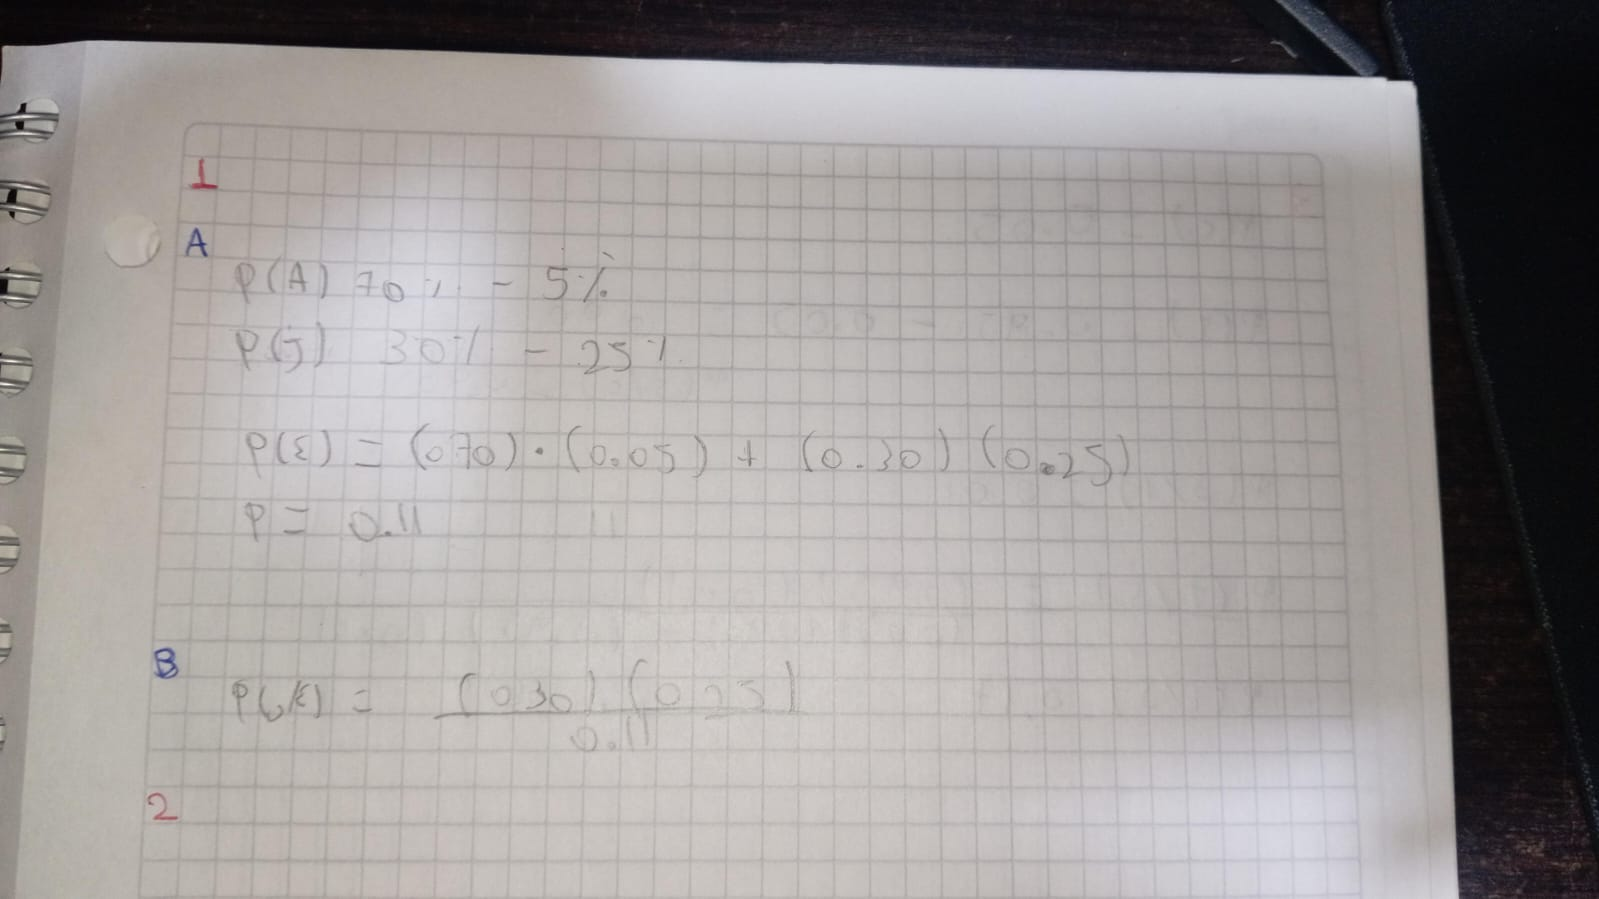 1
A
P(A) 70% - 5%
P(J) 30% - 25%
P(E) = (070) · (0.05) + (0.30) (0.25)
P = 0.11 11
B
= (030) (025)
0.11
2